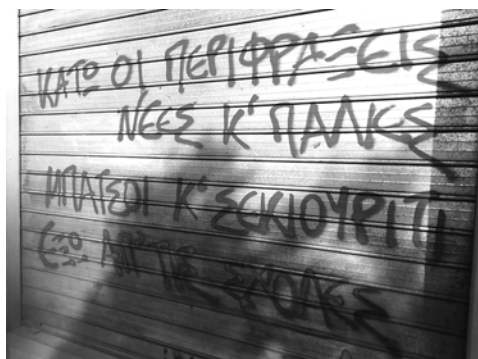 ΚΑΤΩ ΟΙ ΠΕΡΙΦΡΑΞΕΙΣ
ΝΕΕΣ Κ' ΠΑΛΙΕΣ
ΜΠΑΤΣΟΙ Κ' ΣΕΚΙΟΥΡΙΤΙ
ΕΞΩ ΑΠ' ΤΙΣ ΣΧΟΛΕΣ